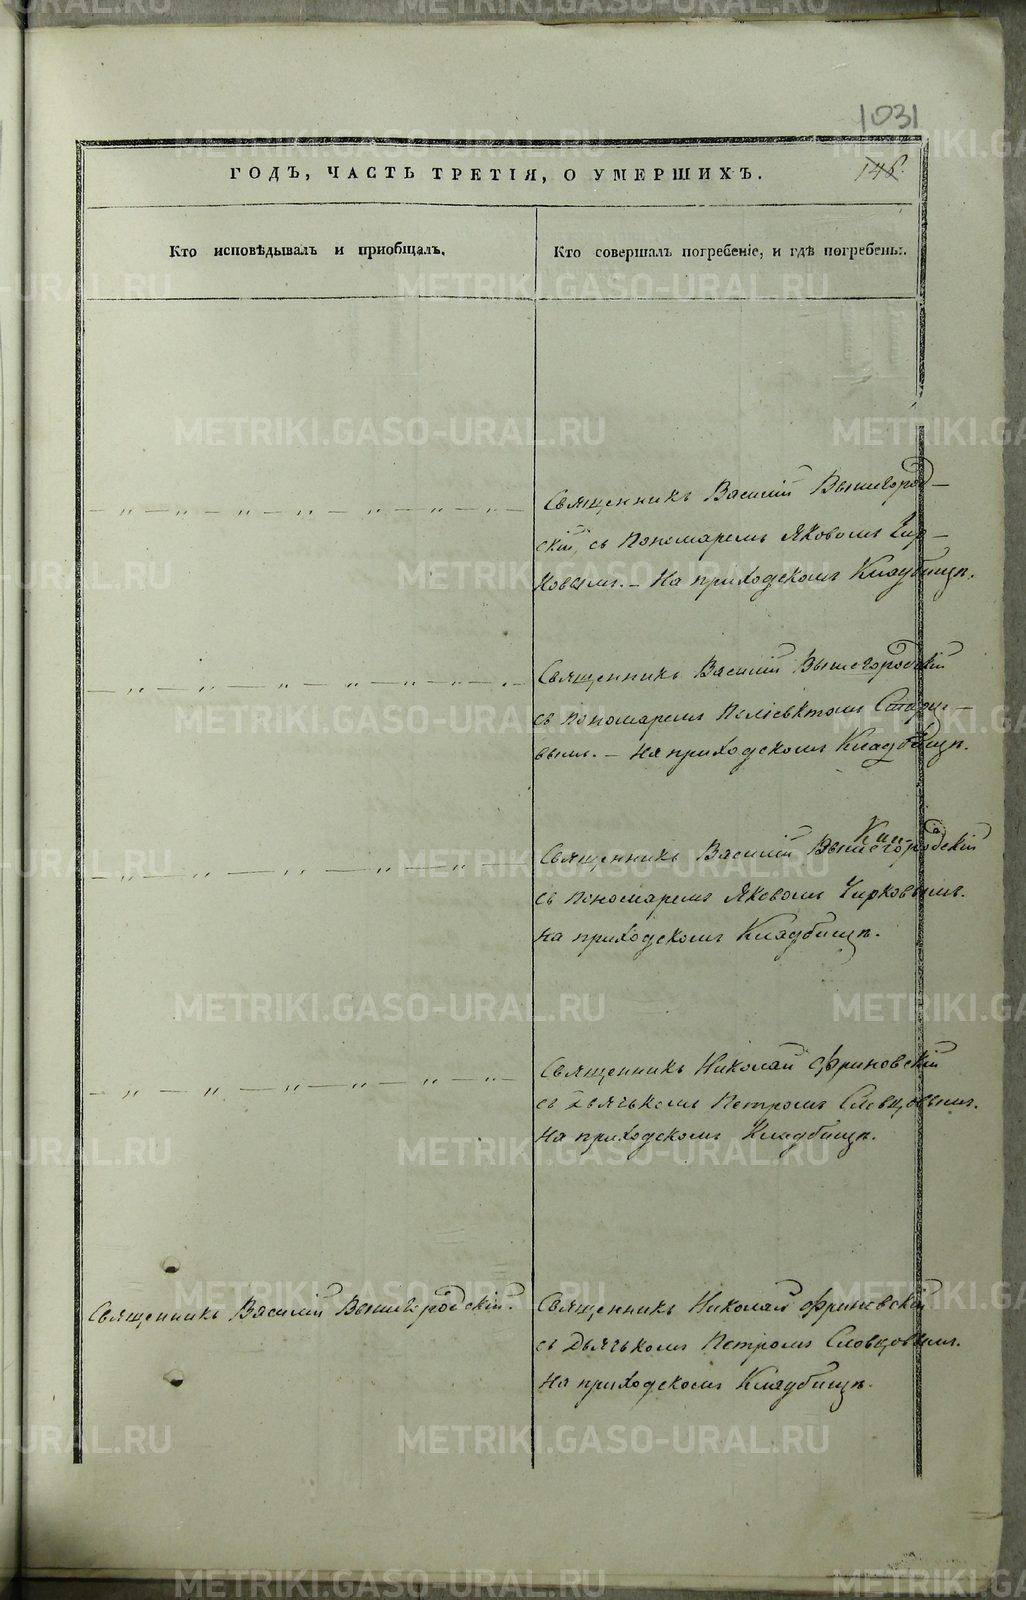 1031
146.
ГОДЪ, ЧАСТЬ ТРЕТІЯ, О УМЕРШИХЪ.
Кто исповѣдывалъ и приобщалъ.
Кто совершалъ погребеніе, и гдѣ погребены.
Священникъ Василій Вышегород-
скій, съ Пономаремъ Яковомъ Чир-
ковымъ. - На приходскомъ Кладбищѣ.
Священникъ Василій Вышегородскій
съ Пономаремъ Поліевктомъ
вымъ. - На приходскомъ Кладбищѣ.
Священникъ Василій Вышегородскій
съ Пономаремъ Яковомъ Чирковымъ.
На приходскомъ Кладбищѣ.
Священникъ Николай Фриновскій
съ Дьячькомъ Петромъ Словцовымъ.
На приходскомъ Кладбищѣ.
Священникъ Василій Вышегородскій.
Священникъ Николай Фриновскій
съ Дьячькомъ Петромъ Словцовымъ.
На приходскомъ Кладбищѣ.
METRIKI.GASO-URAL.RU